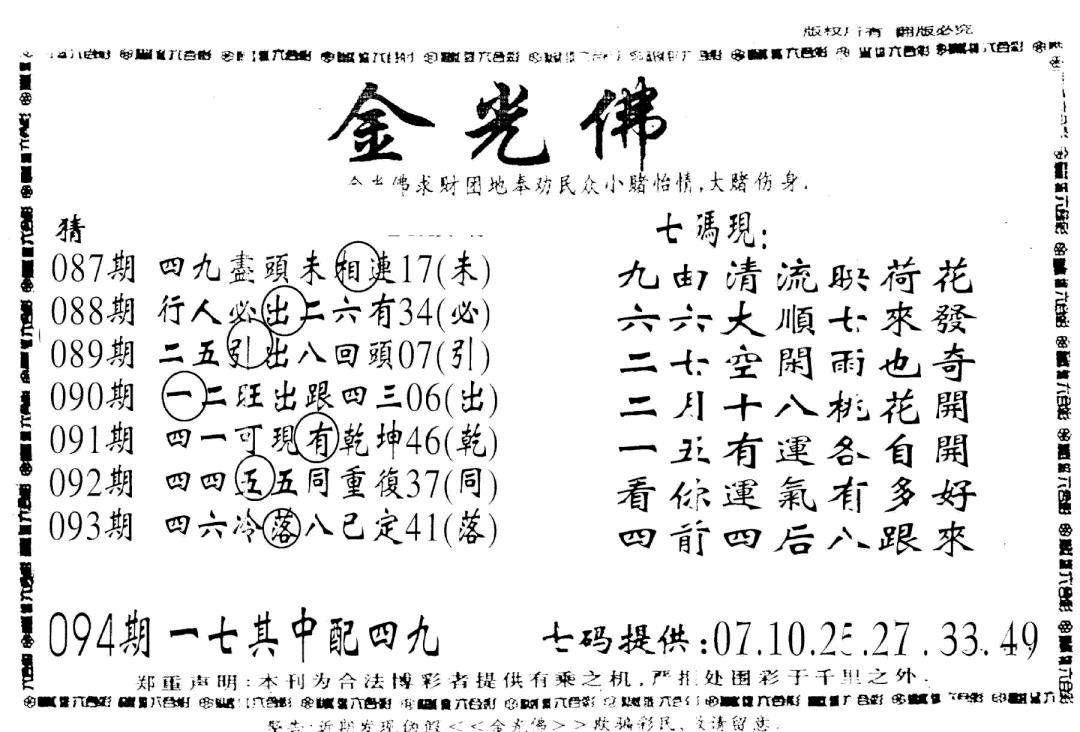 版权所有 翻版必究
金光佛
佛求财团地奉劝民众小赌怡情,大赌伤身.
猜
087期 四九盡頭未相連17(未)
088期 行人必出二六有34(必)
089期 二五引出八回頭07(引)
090期 一二旺出跟四三06(出)
091期 四一可現有乾坤46(乾)
092期 四四五五同重復37(同)
093期 四六冷落八已定41(落)
七碼現:
九由清流映荷花
六六大順七來發
二七空閑雨也奇
二月十八桃花開
一五有運各自開
看你運氣有多好
四前四后八跟來
094期 一七其中配四九
七码提供:07.10.25.27.33.49
郑重声明:本刊为合法博彩者提供有乘之机,严拒处围彩于千里之外.
警告:近期发现伪假<<金光佛>>欺骗彩民,敬请留意.